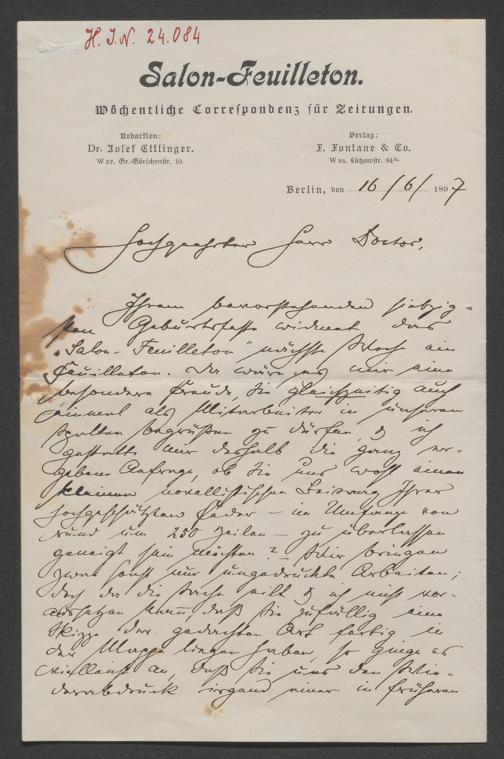 H. I. N. 24.084
Salon-Feuilleton.
Wöchentliche Correspondenz für Zeitungen.
Redaction:
Dr. Josef Ettlinger.
W 57. Gr.-Görschenstr. 10.
Verlag:
F. Fontane & Co.
W 35. Lützowstr. 84b.
Berlin, den 16/6/ 1897
Hochgeehrter Herr Doctor,
Ihrem bevorstehenden siebzig-
sten Geburtsfeste widmet das
"Salon-Feuilleton" nächste Woche ein
Feuilleton. Da wäre es mir eine
besondere Freude, Sie gleichzeitig auch
einmal als Mitarbeiter in unseren
Spalten begrüßen zu dürfen, & ich
gestatte mir deshalb die ganz er-
gebene Anfrage, ob Sie uns wohl einen
kleinen novellistischen Beitrag Ihrer
hochgeschätzten Feder – im Umfange von
rund um 250 Zeilen – zu überlassen
geneigt sein möchten? – Wir bringen
zwar sonst nur ungedruckte Arbeiten;
doch da die Sache eilt & ich nicht vor-
aussetzen kann, daß Sie zufällig eine
Skizze der gedachten Art fertig in
der Mappe liegen haben, so ginge es
vielleicht an, daß Sie uns den Wie-
derabdruck irgend einer in früheren